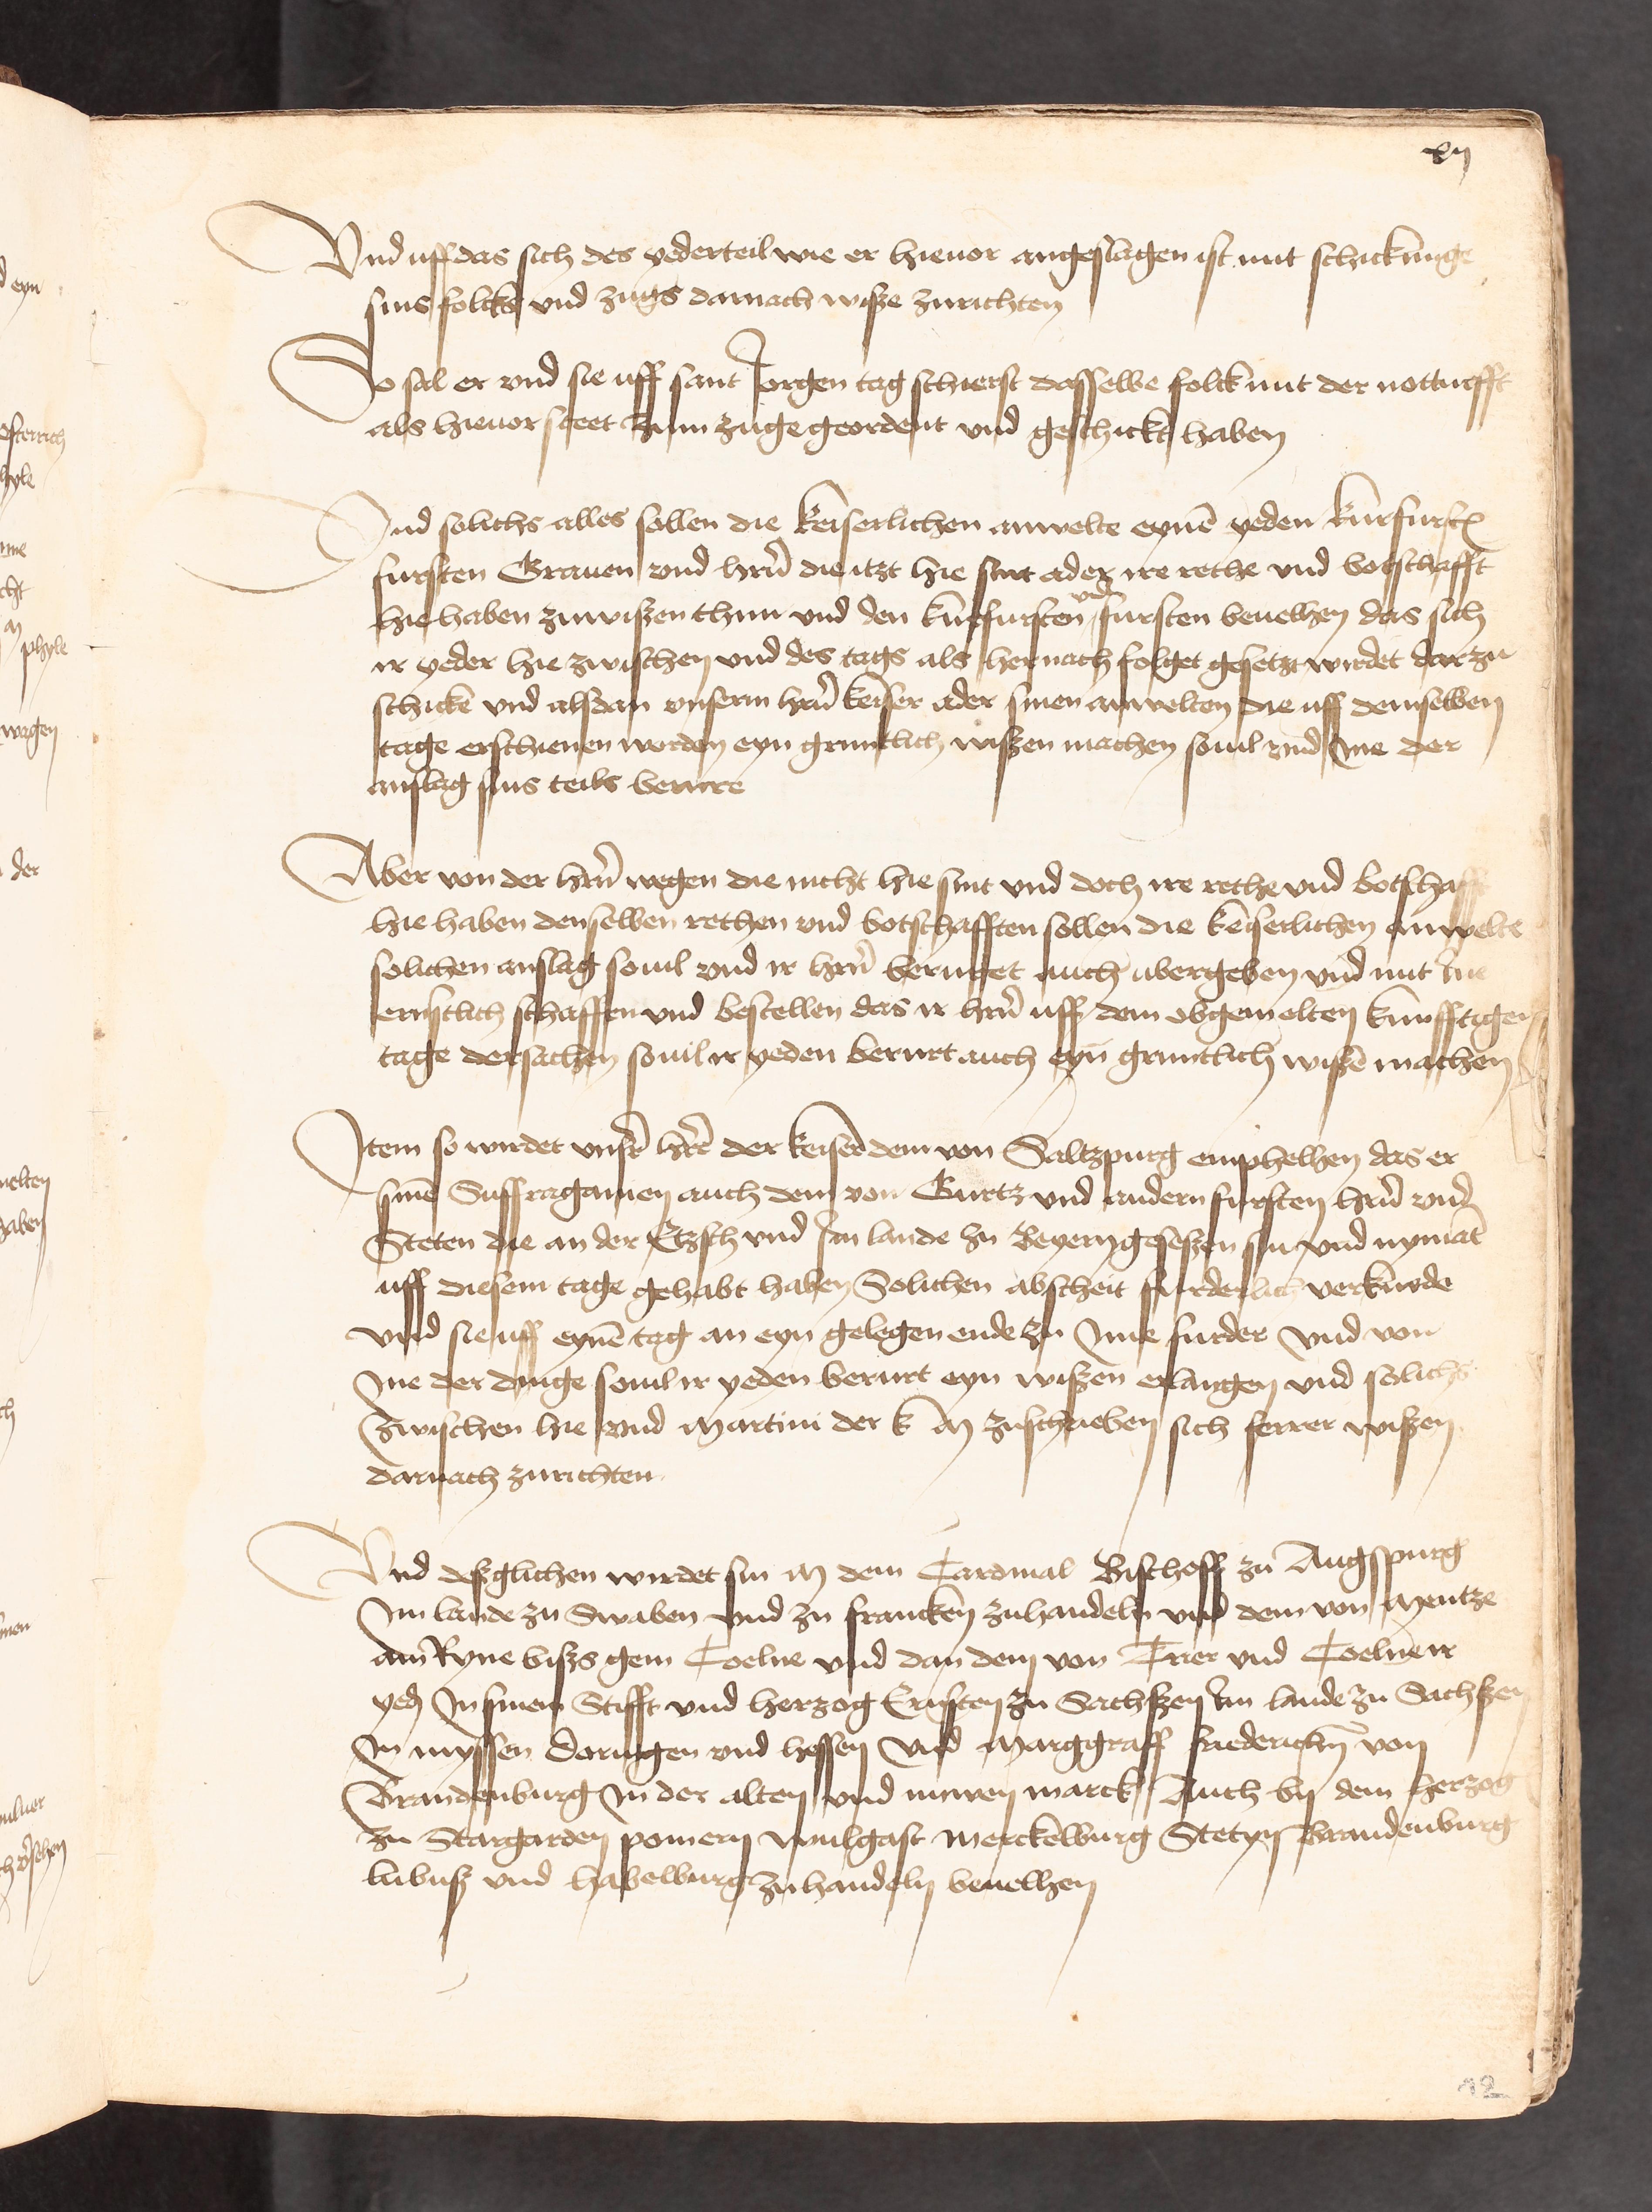 xij
Vnd uff das sich des yederteil wie er hieuor angeslagen ist mit schickunge
sins folcks vnd zugs darnach wisze zurichten
So sal er vnd sie uff sant Jorgen tag schierst dasselbe folck mit der notturfft
als hieuor steet zum zuge geordent vnd geschickt haben
Vnd solichs alles sollen die keiserlichen anwelte eynē yeden kurfurstē
fursten Grauen vnd hrñ die itzt hie sint ader ire rethe vnd botschafft
hie haben zuwiszen thun vnd den kurfursten vnd fursten beuelhen das sich
ir yeder hie zwischen vnd des tags als hernach folget gesetzt wirdet darzu
schickē vnd alsdan vnserm hrñ keiser ader sinen anwelten die uff demselben
tage erschienen werden eyn gruntlich wiszen machen souil vnd Ine der
anslag sins teils berure
Aber von der hrñ wegen die nicht hie sint vnd doch ire rethe vnd botschafft
hie haben denselben rethen vnd botschafften sollen die keiserlichen anwelte
solichen anslag souil vnd ir hrñ beruret auch ubergeben vnd mit Ine
ernstlich schaffen vnd bestellen das ir hrñ uff dem obgemelten kunfftigen
tage der sachen souil ir yeden berurt auch eyn gruntlich wiszē machen
Item so wirdet vnsr̄ hr̄r̄ der keiser dem von Saltzpurg emphelhen das er
sinē Suffraganien auch dem von Gurtz vnd andern fursten hrñ vnd
Steten die an der Etzsch vnd Im lande zu Beyern geseszen sin vnd nymāt
uff diesem tage gehabt haben Solichen abscheit furderlich verkunde
vnd sie uff eynē tag an eyn gelegen ende zu Ime furder vnd von
Ine der dinge souil ir yeden berurt eyn wiszen erlangen vnd solichs
Zwischen hie vnd Martini der k M zuschrieben sich ferrer wiszen
darnach zurichten
Vnd deszglichen wirdet sin M dem Cardinal Bischoff zu Augspurg
Im lande zu Swaben vnd zu francken zuhandeln vnd dem von Mentze
am Ryne biszs gem Coelne vnd dan dem von Trier vnd Coelne ir
yedͤ In sinem Stifft vnd herzog Ernsten zu Sachszen Im lande zu Sachszen
In myssen Doringen vnd hessen Vnd Marggraff friederichn̄ von
Brandenburg In der alten vnd nuwen marck Auch by dem herzog
zu Stargarden pomern wulgast Merckelburg Stetyn Brandenburg
lubusz vnd habelburg zuhandeln beuelhen
12